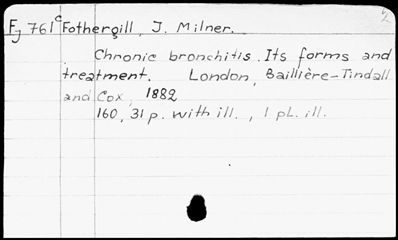 Fj 761c Fothergill, J. Milner.
Chronic bronchitis. Its forms and
treatment. London, Baillière-Tindall
and Cox, 1882
160, 31 p. with ill., 1 pl. ill.